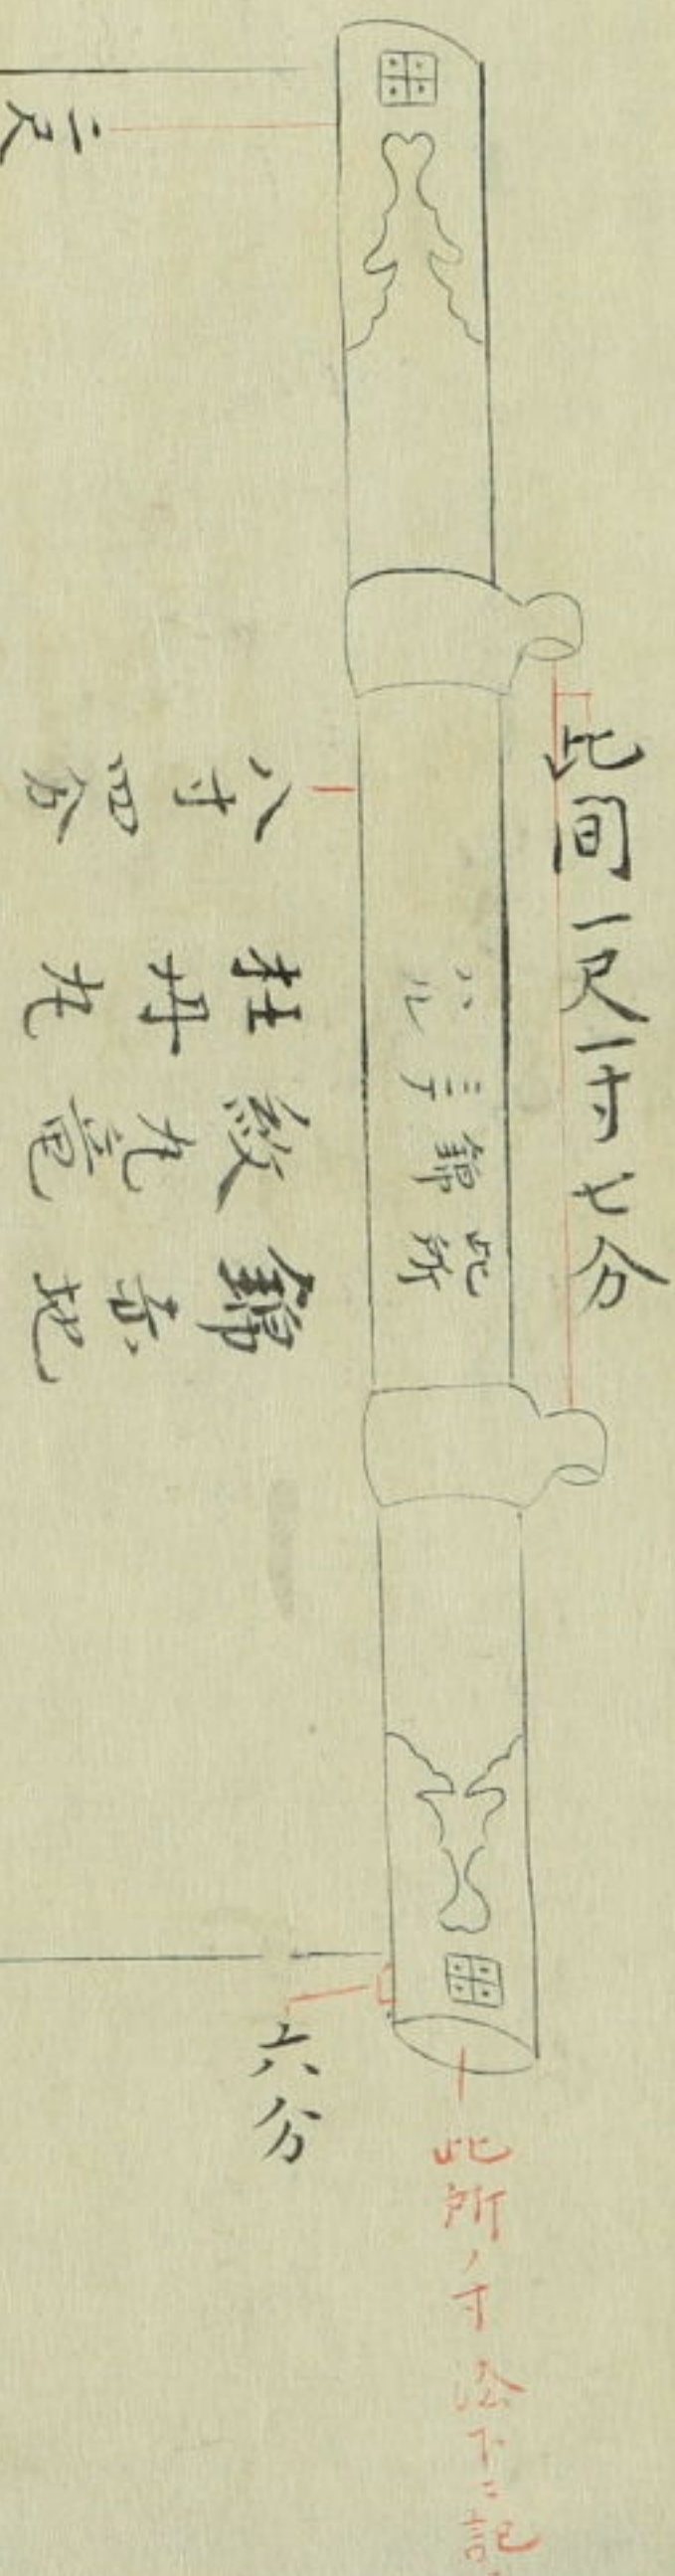 此間一尺一寸七分
此所
錦
ニテ
ハル
錦赤地
紋丸竜
杜丹丸
八寸四分
二尺
六分
此所ノ寸法下ニ記